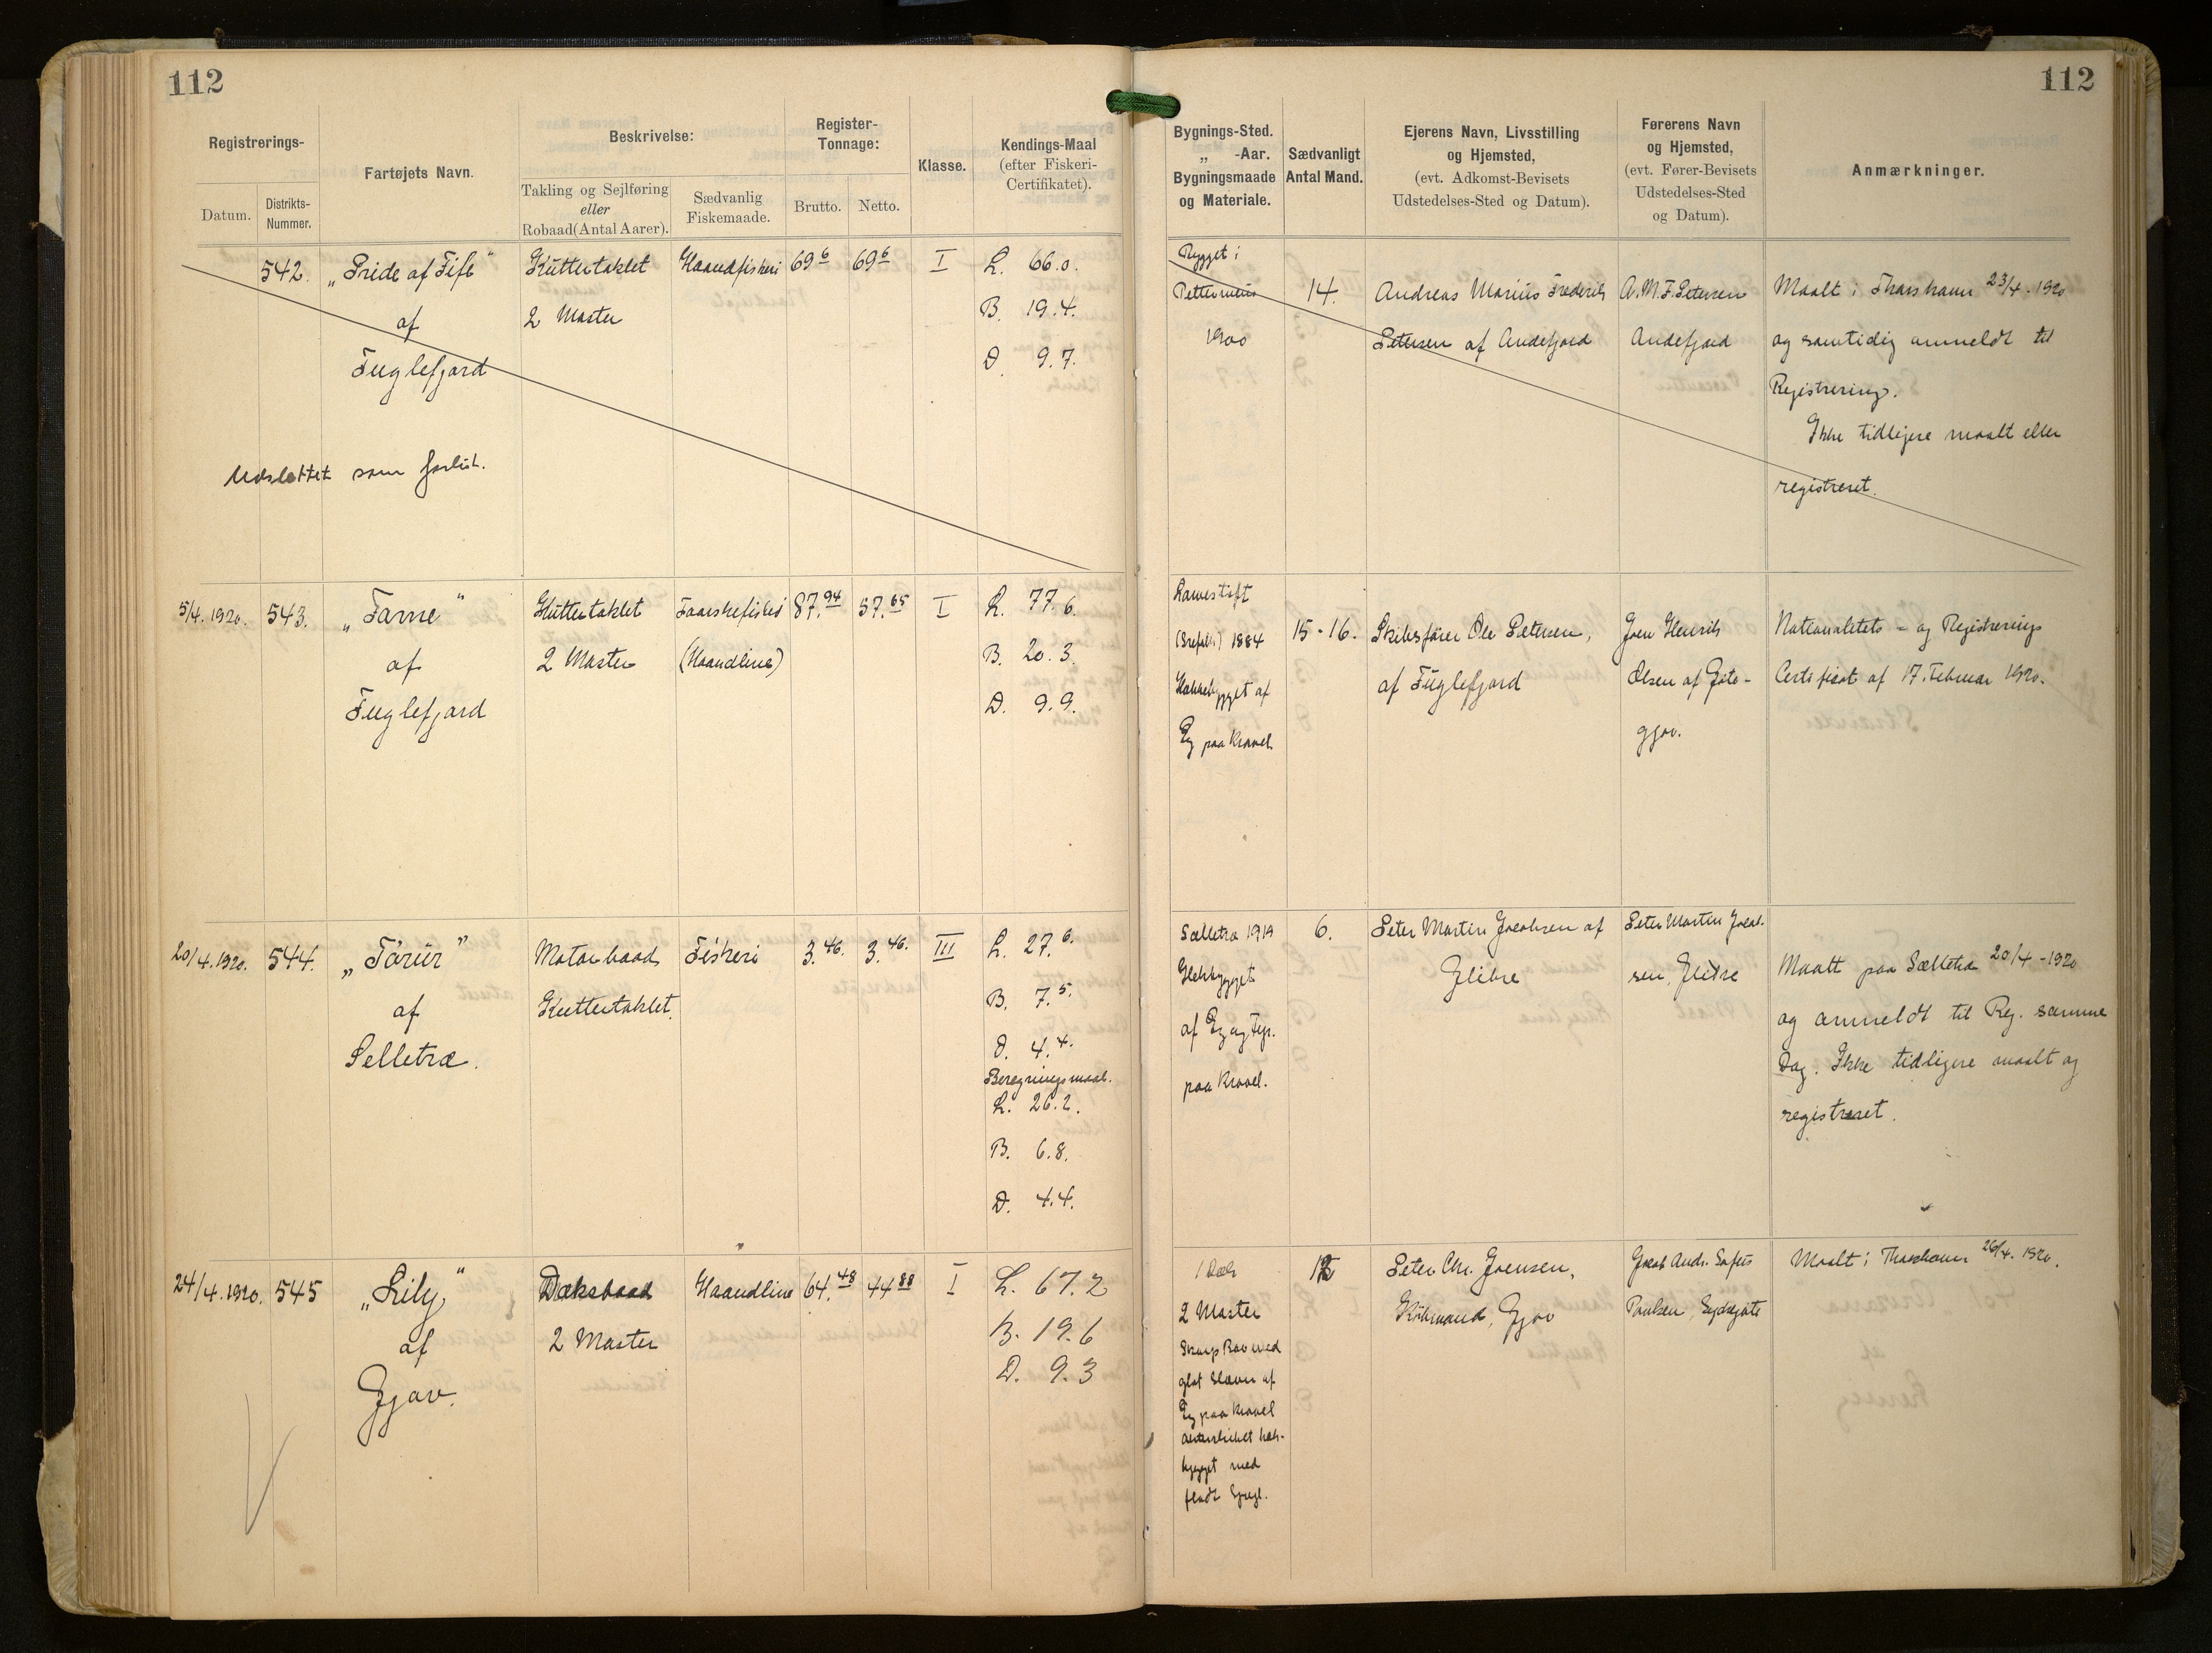 112
112
Registrerings-
Datum.
Distrikts-
Nummer.
Fartøjets Navn.
Beskrivelse:
Takling og Sejlføring
eller
Robaad (Antal Aarer).
Sædvanlig
Fiskemaade.
Register-
Tonnage:
Brutto.
Netto.
Klasse.
Kendings-Maal
(efter Fiskeri-
Certifikatet).
Bygnings-Sted.
„ -Aar.
Bygningsmaade
og Materiale.
Sædvanligt
Antal Mand.
Ejerens Navn, Livsstilling
og Hjemsted,
(evt. Adkomst-Bevisets
Udstedelses-Sted og Datum).
Førerens Navn
og Hjemsted,
(evt. Fører-Bevisets
Udstedelses-Sted
og Datum).
Anmærkninger.
542.
„Pride af Fife"
af
Fuglefjord
Udslettet som forlist.
Kuttertaklet
2 Master
Haandfiskeri
69 6
69 6
I
L. 66.0.
B. 19.4.
D. 9.7.
Bygget i
1900
14.
Andreas Marius Frederik
Petersen af Andefjord
A.M.F. Petersen
Andefjord
Maalt i Thorshavn 23/4 - 1920
og samtidig anmeldt til
Registrering.
Ikke tidligere maalt eller
registreret.
5/4. 1920.
543.
„Farne"
af
Fuglefjord
Kuttertaklet
2 Master
(Haandline)
87.94
57.65
I
L. 77.6.
B. 20.3.
D. 9.9.
1884
af
Eg paa Kravel.
15-16.
Skibsfører Ole Petersen,
af Fuglefjord
Joen Henrik
Olsen af Gøte-
gjov.
Nationalitets- og Registrerings
Certifikat af 17. Februar 1920.
20/4. 1920.
544.
af
Selletræ.
Motorbaad
Kuttertaklet.
Fiskeri
3.46.
3.46.
III
L. 27.6.
B. 7.5.
D. 4.4.
Beregningsmaal.
L. 26.2.
B. 6.8.
D. 4.4.
Sælletræ 1919
Hekbygget
af Eg og Fyr.
paa Kravel.
6.
Peter Martin Jacobsen af
Glibre
Peter Martin Jacob-
sen, Glibre
Maalt paa Sælletræ 20/4 - 1920
og anmeldt til Reg. samme
Dag. Ikke tidligere maalt og
registreret.
24/4. 1920.
545
„Lily"
af
Gjov.
Dæksbaad
2 Master
Haandline
64.48
44 88
I
L. 67.2
B. 19.6
D. 9.3
1 Dæk
2 Master
Skarp Bov med
glat Stævn af
Eg paa Kravel
agterskibet hæk-
bygget med
fladt Spejl.
Peter Chr. Joensen,
Købmand, Gjov
Jacob Andr. Sofus
Poulsen, Sydregøte
Maalt i Thorshavn 26/4. 1920.